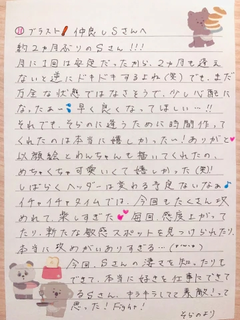 ⑪ ブラスト 仲良しSさんへ
約2ヶ月ぶりのSさん!!!
月に1回は安定だったから、2ヶ月も逢え
ないと逆にドキドキするよね(笑)でも、まだ
万全な状態ではなさそうで、少し心配に
な、たぁー 早く良くなってほしい…!!
それでも、そらのに逢うために時間作って
くれたのは本当に嬉しかったー!ありがと
以顔絵とわんちゃんも描いてくれたの、
めちゃくちゃ可愛いくて嬉しかった(笑)!
しばらくヘッダーは変わる予定ないなぁ
イチャイチャタイムでは、今回もたくさん攻
めれて、楽しすぎた 毎回、感度上がってし
たり、新たな敏感スポットを見つけられたり、
本当に攻めがいありすぎる…(
今回、Sさんの凄さを知ったり
できて、本当に好きを仕事にできて
るSさん、キラキラしてて素敵!って
思った!Fight!
そらのより